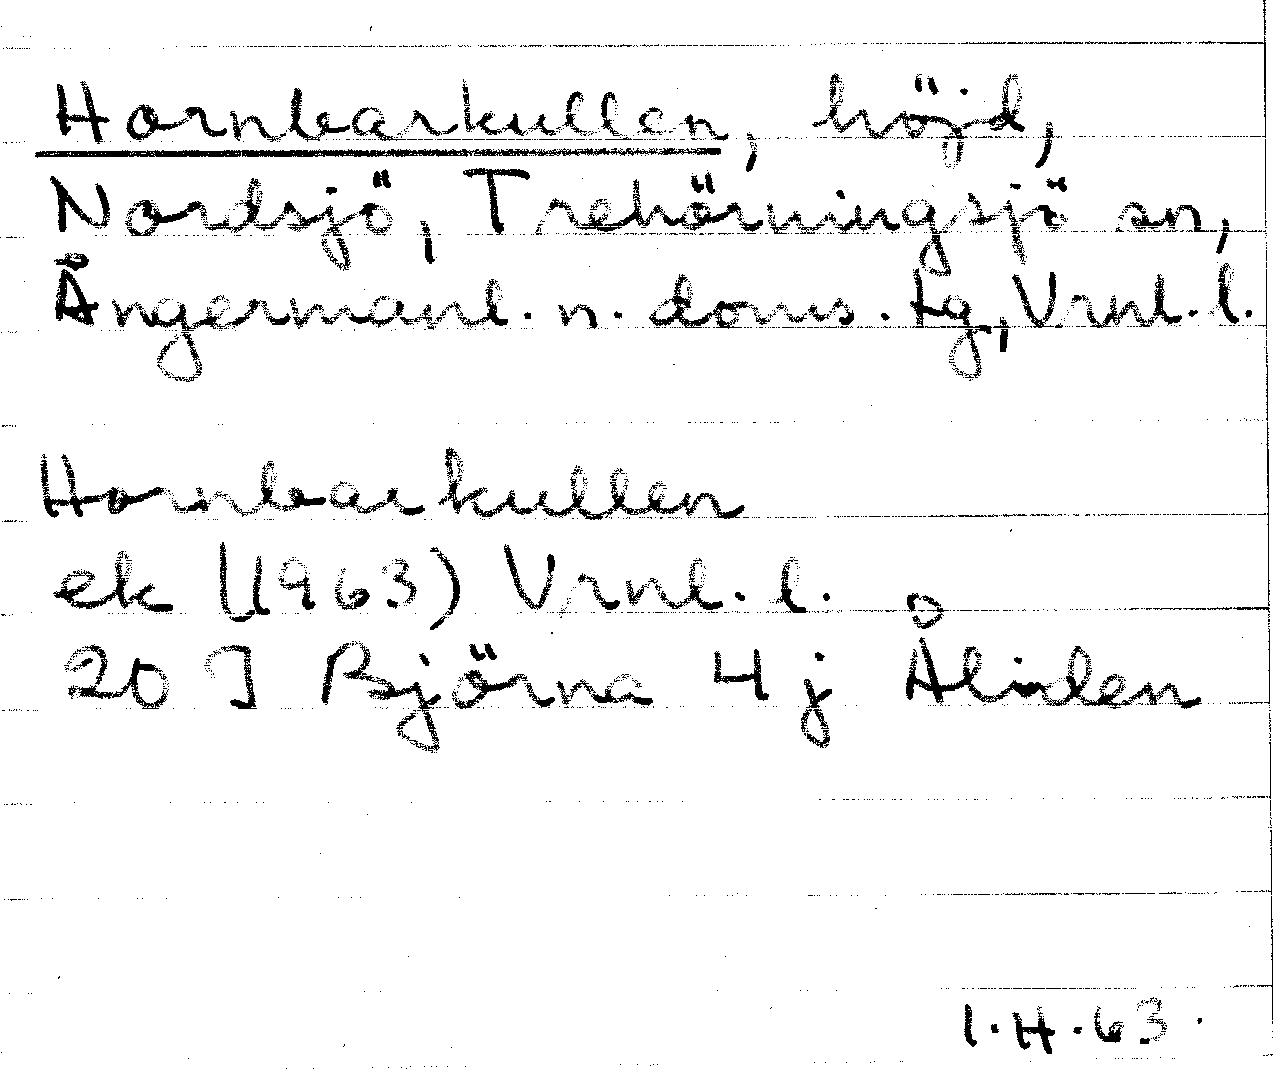 Hornbarkullen, höjd,
Nordsjö, Trehörningsjö sn,
Ångermanl. n. doms. tg, Vrnl. l.
Hornbarkullen
ek (1963) Vrnl. l.
20 J Björna 4 j Åliden
I.H.63.